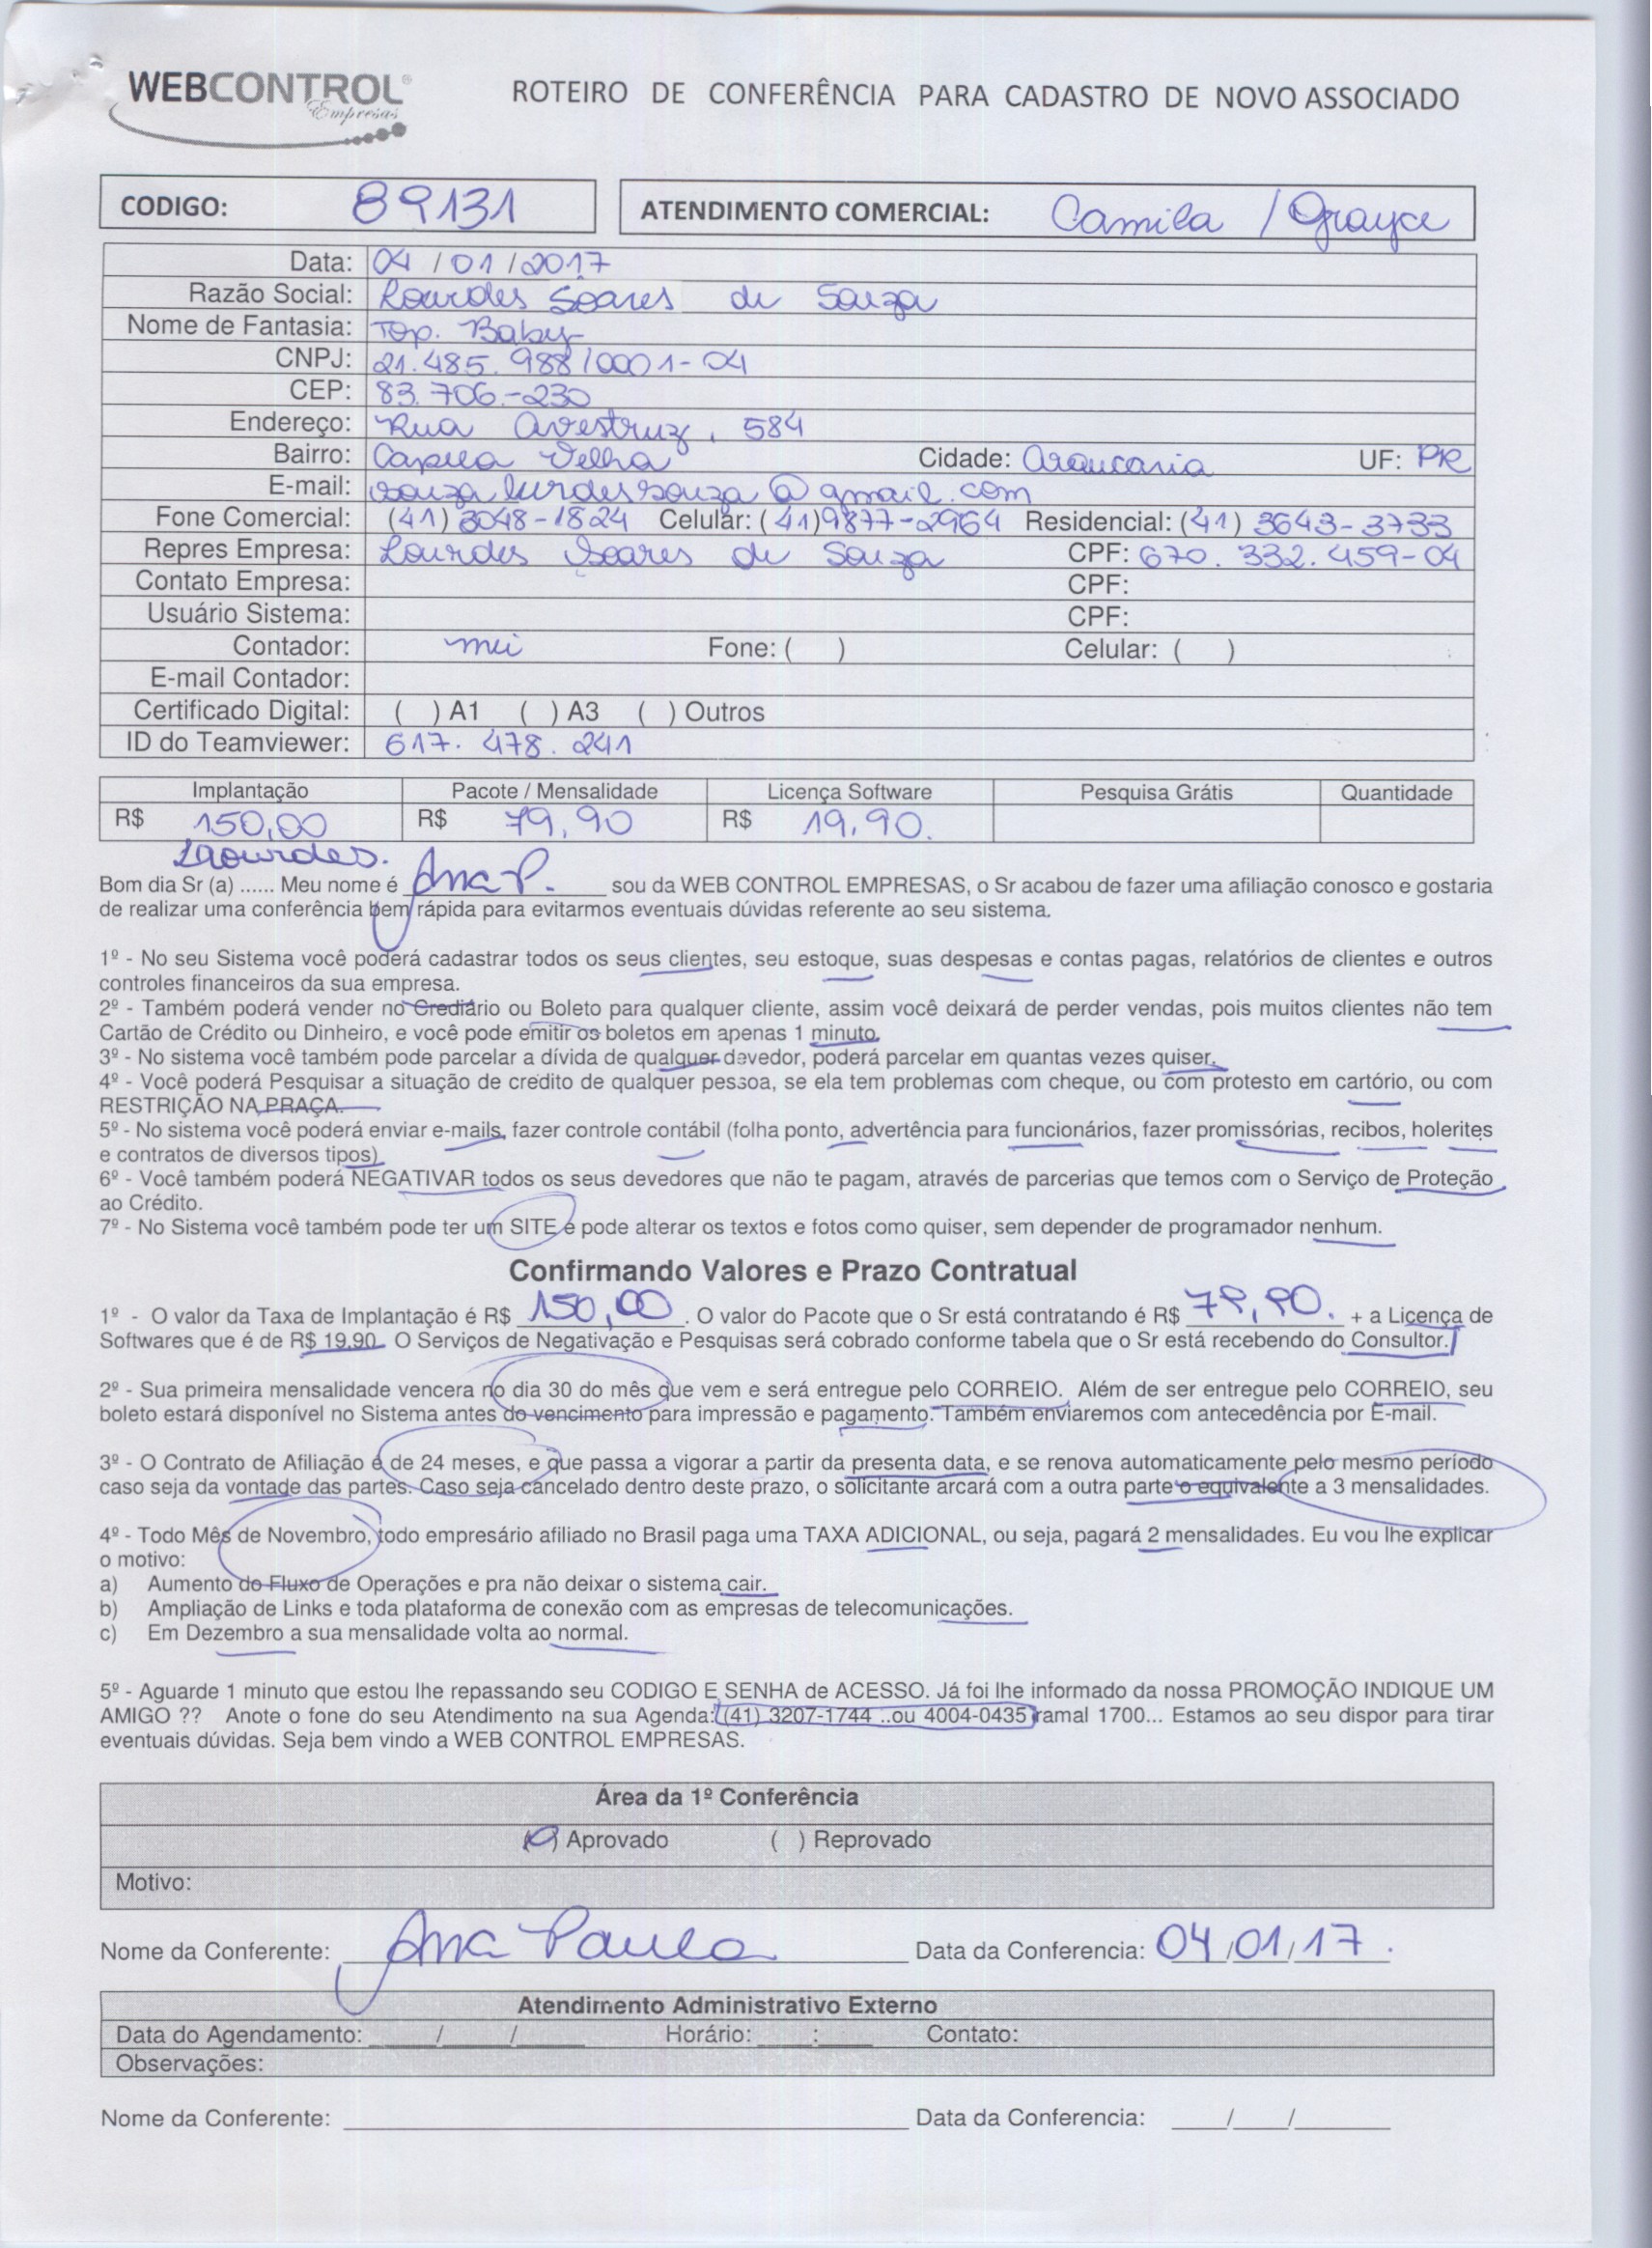 WEBCONTROL
Empresas
ROTEIRO DE CONFERÊNCIA PARA CADASTRO DE NOVO ASSOCIADO
CODIGO: 89131 ATENDIMENTO COMERCIAL: Camila / Grayce
Data: 04 / 01 / 2017
Razão Social: Lourdes Soares de Souza
Nome de Fantasia: Top. Baby
CNPJ: 21.485.988/0001-04
CEP: 83.706-230
Endereço: Rua Avestruz, 584
Bairro: Capela Velha Cidade: Araucaria UF: PR
E-mail: souza.lurdessouza@gmail.com
Fone Comercial: (41) 3048-1824 Celular: (41)9877-2964 Residencial: (41) 3643-3733
Repres Empresa: Lourdes Soares de Souza CPF: 670.332.459-04
Contato Empresa: CPF:
Usuário Sistema: CPF:
Contador: mei Fone: ( ) Celular: ( )
E-mail Contador:
Certificado Digital: ( ) A1 ( ) A3 ( ) Outros
ID do Teamviewer: 617.478.241
Implantação Pacote / Mensalidade Licença Software Pesquisa Grátis Quantidade
R$ 150,00 R$ 79,90 R$ 19,90.
Lourdes.
Bom dia Sr (a) ...... Meu nome é Ana P. sou da WEB CONTROL EMPRESAS, o Sr acabou de fazer uma afiliação conosco e gostaria
de realizar uma conferência bem rápida para evitarmos eventuais dúvidas referente ao seu sistema.
1º - No seu Sistema você poderá cadastrar todos os seus clientes, seu estoque, suas despesas e contas pagas, relatórios de clientes e outros
controles financeiros da sua empresa.
2º - Também poderá vender no Crediário ou Boleto para qualquer cliente, assim você deixará de perder vendas, pois muitos clientes não tem
Cartão de Crédito ou Dinheiro, e você pode emitir os boletos em apenas 1 minuto.
3º - No sistema você também pode parcelar a dívida de qualquer devedor, poderá parcelar em quantas vezes quiser.
4º - Você poderá Pesquisar a situação de credito de qualquer pessoa, se ela tem problemas com cheque, ou com protesto em cartório, ou com
RESTRIÇÃO NA PRAÇA.
5º - No sistema você poderá enviar e-mails, fazer controle contábil (folha ponto, advertência para funcionários, fazer promissórias, recibos, holerites
e contratos de diversos tipos)
6º - Você também poderá NEGATIVAR todos os seus devedores que não te pagam, através de parcerias que temos com o Serviço de Proteção
ao Crédito.
7º - No Sistema você também pode ter um SITE e pode alterar os textos e fotos como quiser, sem depender de programador nenhum.
Confirmando Valores e Prazo Contratual
1º - O valor da Taxa de Implantação é R$ 150,00. O valor do Pacote que o Sr está contratando é R$ 79,90. + a Licença de
Softwares que é de R$ 19,90. O Serviços de Negativação e Pesquisas será cobrado conforme tabela que o Sr está recebendo do Consultor.
2º - Sua primeira mensalidade vencera no dia 30 do mês que vem e será entregue pelo CORREIO. Além de ser entregue pelo CORREIO, seu
boleto estará disponível no Sistema antes do vencimento para impressão e pagamento. Também enviaremos com antecedência por E-mail.
3º - O Contrato de Afiliação é de 24 meses, e que passa a vigorar a partir da presenta data, e se renova automaticamente pelo mesmo período
caso seja da vontade das partes. Caso seja cancelado dentro deste prazo, o solicitante arcará com a outra parte o equivalente a 3 mensalidades.
4º - Todo Mês de Novembro, todo empresário afiliado no Brasil paga uma TAXA ADICIONAL, ou seja, pagará 2 mensalidades. Eu vou lhe explicar
o motivo:
a) Aumento do Fluxo de Operações e pra não deixar o sistema cair.
b) Ampliação de Links e toda plataforma de conexão com as empresas de telecomunicações.
c) Em Dezembro a sua mensalidade volta ao normal.
5º - Aguarde 1 minuto que estou lhe repassando seu CODIGO E SENHA de ACESSO. Já foi lhe informado da nossa PROMOÇÃO INDIQUE UM
AMIGO ?? Anote o fone do seu Atendimento na sua Agenda: (41) 3207-1744 ..ou 4004-0435 ramal 1700... Estamos ao seu dispor para tirar
eventuais dúvidas. Seja bem vindo a WEB CONTROL EMPRESAS.
Área da 1º Conferência
( ) Aprovado ( ) Reprovado
Motivo:
Nome da Conferente: Ana Paula Data da Conferencia: 04/01/17.
Atendimento Administrativo Externo
Data do Agendamento: ____/____/____ Horário: ____:____ Contato:
Observações:
Nome da Conferente: ____ Data da Conferencia: ____/____/____